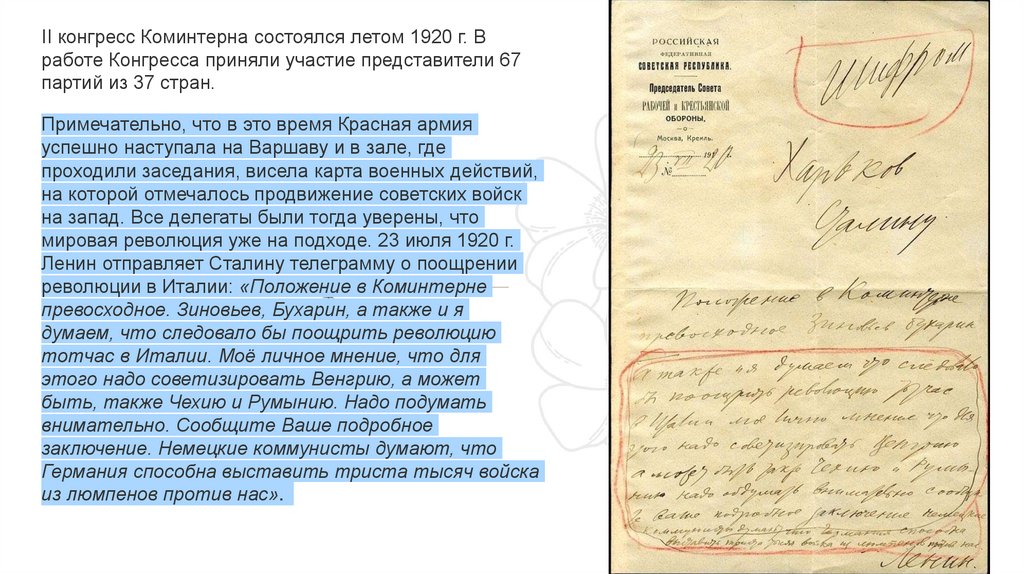 II конгресс Коминтерна состоялся летом 1920 г. В
работе Конгресса приняли участие представители 67
партий из 37 стран.
Примечательно, что в это время Красная армия
успешно наступала на Варшаву и в зале, где
проходили заседания, висела карта военных действий,
на которой отмечалось продвижение советских войск
на запад. Все делегаты были тогда уверены, что
мировая революция уже на подходе. 23 июля 1920 г.
Ленин отправляет Сталину телеграмму о поощрении
революции в Италии: «Положение в Коминтерне
превосходное. Зиновьев, Бухарин, а также и я
думаем, что следовало бы поощрить революцию
тотчас в Италии. Моё личное мнение, что для
этого надо советизировать Венгрию, а может
быть, также Чехию и Румынию. Надо подумать
внимательно. Сообщите Ваше подробное
заключение. Немецкие коммунисты думают, что
Германия способна выставить триста тысяч войска
из люмпенов против нас».
РОССИЙСКАЯ
ФЕДЕРАТИВНАЯ
СОВЕТСКАЯ РЕСПУБЛИКА.
Председатель Совета
РАБОЧЕЙ и КРЕСТЬЯНСКОЙ
ОБОРОНЫ.
Москва, Кремль.
23 VII 1920 г.
№
Шифром
Харьков
Сталину
Положение в Коминтерне
превосходное Зиновьев Бухарин
а также и я думаем что следовало
бы поощрить революцию тотчас
в Италии мое личное мнение что для
этого надо советизировать Венгрию
а может быть также Чехию и Румы-
нию надо обдумать внимательно сообщи
те ваше подробное заключение немецкие
коммунисты думают что Германия способна
выставить триста тысяч войска из люмпенов против нас
Ленин.